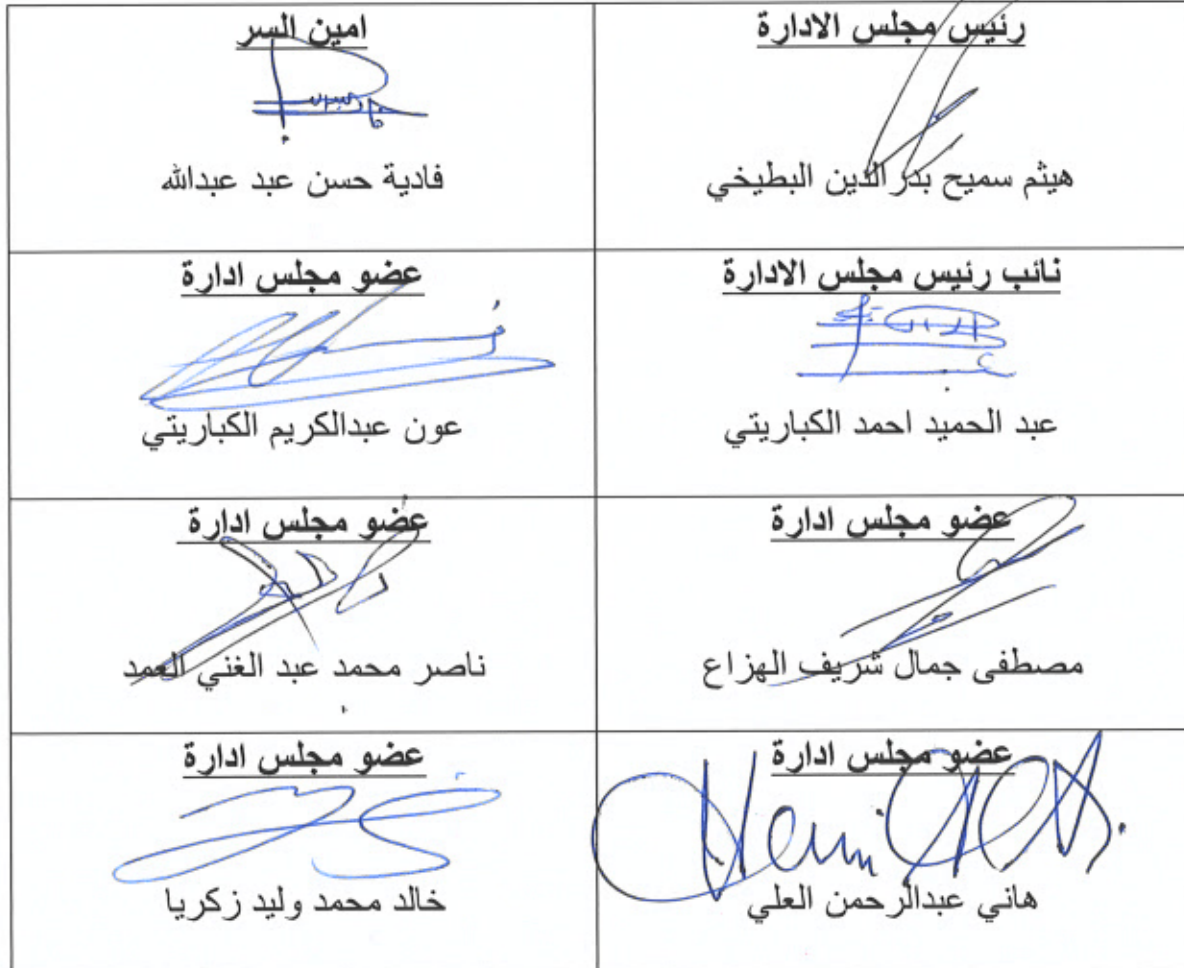 رئيس مجلس الادارة
هيثم سميح بدر الدين البطيخي
امين السر
فادية حسن عبد عبدالله
نائب رئيس مجلس الادارة
عبد الحميد احمد الكباريتي
عضو مجلس ادارة
عون عبدالكريم الكباريتي
عضو مجلس ادارة
مصطفى جمال شريف الهزاع
عضو مجلس ادارة
ناصر محمد عبد الغني العمد
عضو مجلس ادارة
هاني عبدالرحمن العلي
عضو مجلس ادارة
خالد محمد وليد زكريا